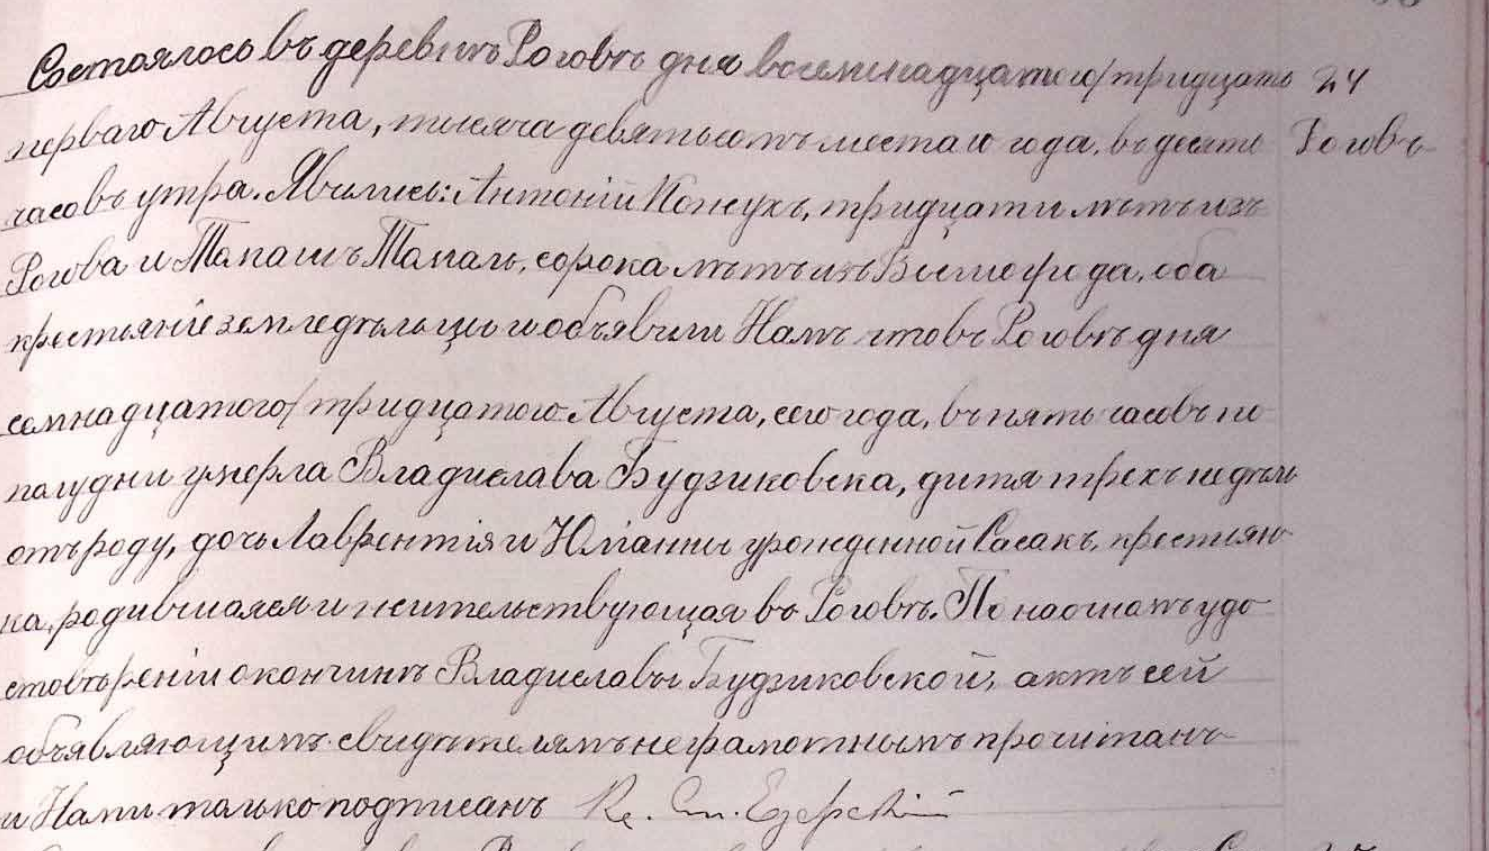 Состоялось въ деревнѣ Роговѣ дня восемнадцатого/тридцать 24
перваго Августа, тысяча девятьсотъ шестаго года, въ десять Роговъ
часовъ утра. Явились: Антоній Кожухъ, тридцати лѣтъ изъ
Рогова и Томашъ, сорока лѣтъ изъ оба
крестьяніе земледѣльцы и объявили Намъ что въ Роговѣ дня
семнадцатого/тридцатого Августа, сего года, въ пять часовъ по
полудни умерла Владислава Будзиковска, дитя трехъ недѣль
отъ роду, дочь Лаврентія и Юліанны урожденной Сасакъ, крестьян
ка, родившаяся и жительствующая въ Роговѣ. По наочномъ удо
стовѣреніи окончинѣ Владиславы Будзиковской, актъ сей
объявляющимъ свидѣтелямъ неграмотнымъ прочитанъ
и Нами только подписанъ Кс. Ст. Езерскій